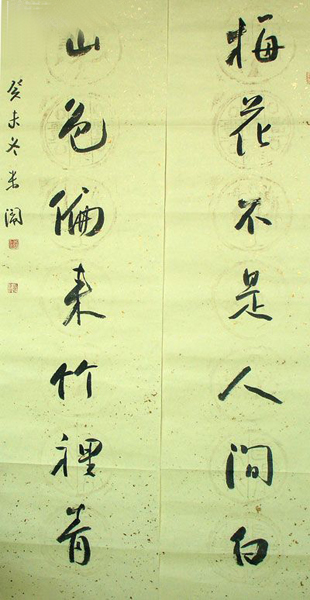 梅花不是人間白
山色偏来竹裡青
癸未冬米闹